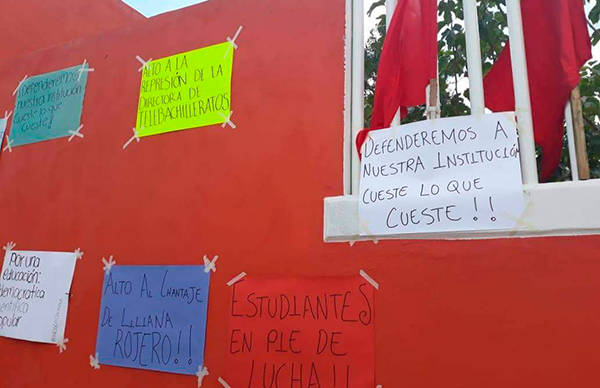 ¡Defenderemos
nuestra institución
cueste lo que
cueste!
ALTO A LA
REPRESIÓN DE LA
DIRECTORA DE
TELEBACHILLERATOS
DEFENDEREMOS A
NUESTRA INSTITUCIÓN
CUESTE LO QUE
CUESTE !!
Por una
educación:
democrática
científica
popular
ALTO AL CHANTAJE
DE LILIANA
ROJERO!!
ESTUDIANTES
EN PIE DE
LUCHA!!